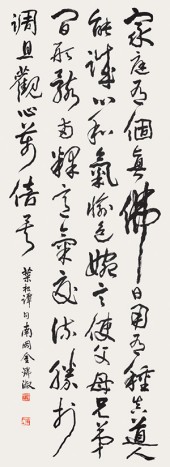 家庭有個真佛日用有種真道人
能誠心和氣愉色婉言使父母兄弟
間形骸兩釋意氣交流勝於
調息觀心萬倍矣
菜根譚句南岡金淑